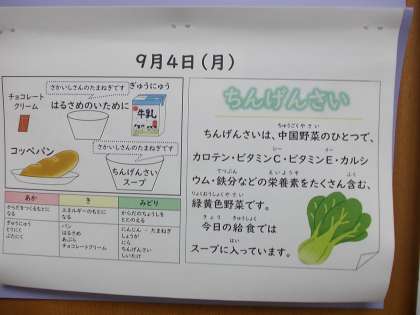 9月4日(月)
さかいしさんのたまねぎです
ぎゅうにゅう
チョコレート
クリーム
はるさめのいために
牛乳
コッペパン
さかいしさんのたまねぎです
ちんげんさい
スープ
あか
き
みどり
からだをつくるもとに
なる
エネルギーのもとに
なる
からだのちょうしを
ととのえる
ぎゅうにゅう
とりにく
ぶたにく
パン
はるさめ
あぶら
チョコレートクリーム
にんじん たまねぎ
しょうが
にら
ちんげんさい
しいたけ
ちんげんさい
ちゅうごくやさい
ちんげんさいは、中国野菜のひとつで、
シー イー
カロテン・ビタミンC・ビタミンE・カルシ
てつぶん えいようそ
ウム・鉄分などの栄養素をたくさん含む、
りょくおうしょくやさい
緑黄色野菜です。
きょう きゅうしょく
今日の給食では
はい
スープに入っています。